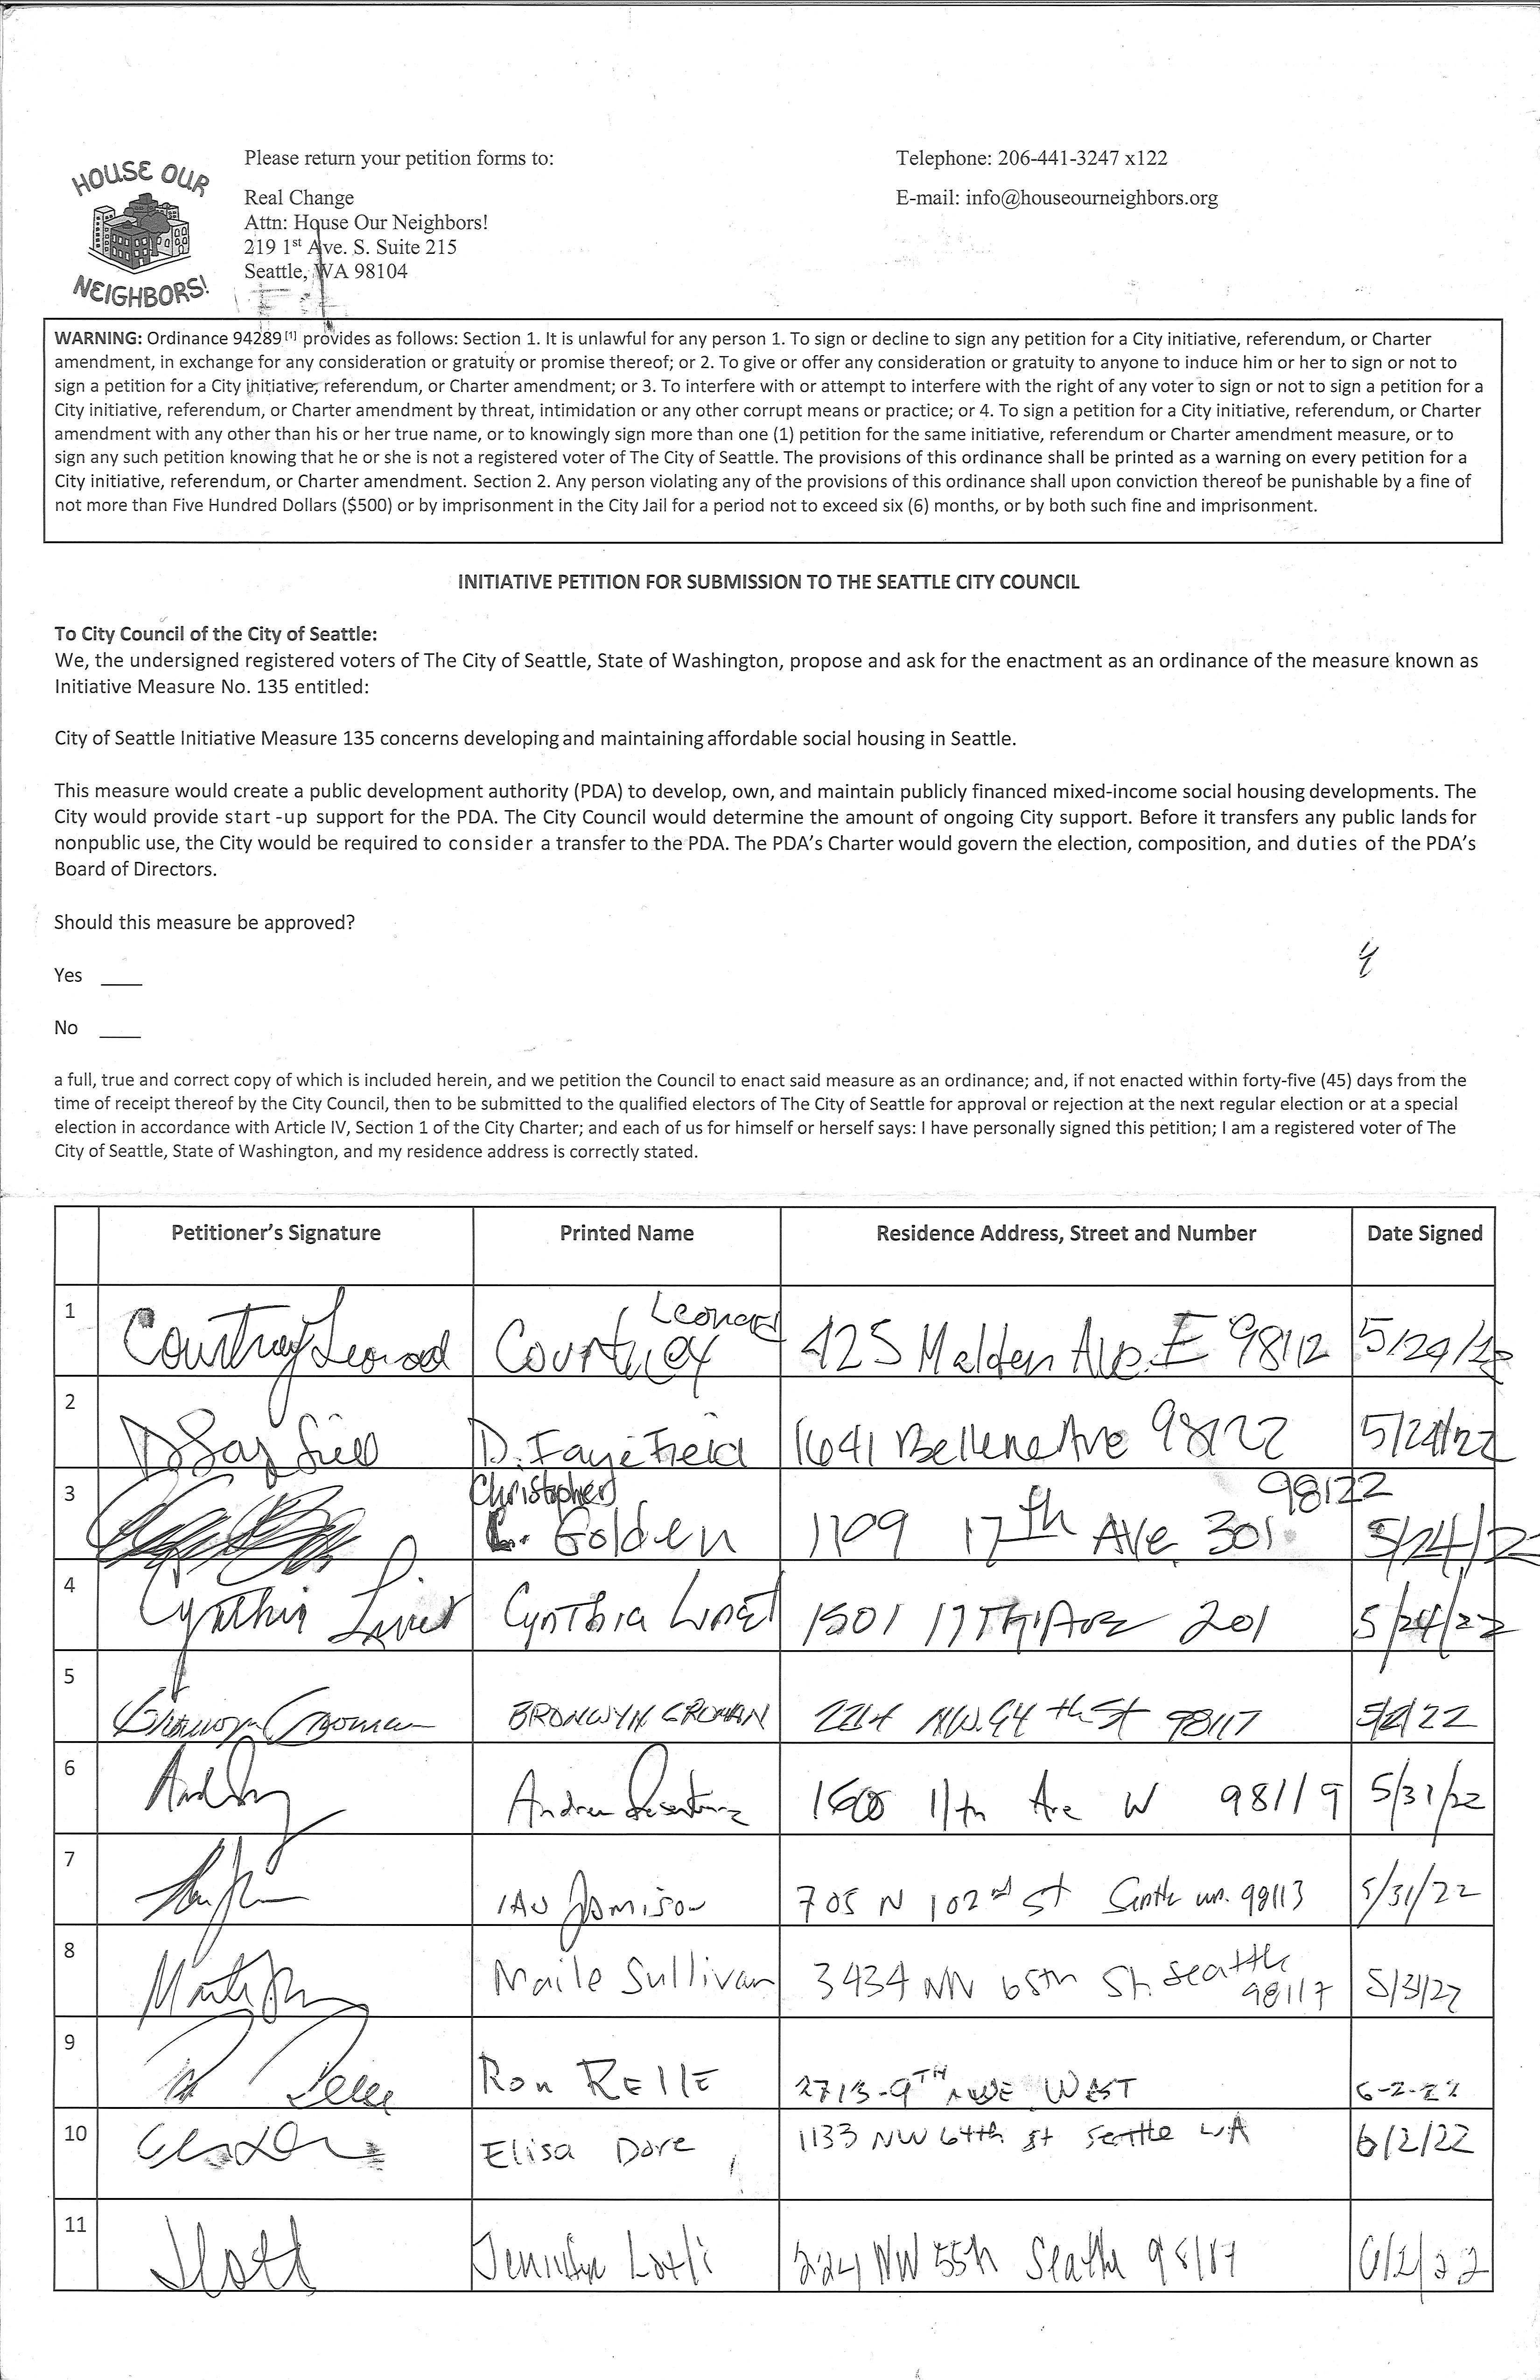 HOUSE OUR
NEIGHBORS!
Please return your petition forms to:
Real Change
Attn: House Our Neighbors!
219 1st Ave. S. Suite 215
Seattle, WA 98104
Telephone: 206-441-3247 x122
E-mail: info@houseourneighbors.org
WARNING: Ordinance 94289[1] provides as follows: Section 1. It is unlawful for any person 1. To sign or decline to sign any petition for a City initiative, referendum, or Charter
amendment, in exchange for any consideration or gratuity or promise thereof; or 2. To give or offer any consideration or gratuity to anyone to induce him or her to sign or not to
sign a petition for a City initiative, referendum, or Charter amendment; or 3. To interfere with or attempt to interfere with the right of any voter to sign or not to sign a petition for a
City initiative, referendum, or Charter amendment by threat, intimidation or any other corrupt means or practice; or 4. To sign a petition for a City initiative, referendum, or Charter
amendment with any other than his or her true name, or to knowingly sign more than one (1) petition for the same initiative, referendum or Charter amendment measure, or to
sign any such petition knowing that he or she is not a registered voter of The City of Seattle. The provisions of this ordinance shall be printed as a warning on every petition for a
City initiative, referendum, or Charter amendment. Section 2. Any person violating any of the provisions of this ordinance shall upon conviction thereof be punishable by a fine of
not more than Five Hundred Dollars ($500) or by imprisonment in the City Jail for a period not to exceed six (6) months, or by both such fine and imprisonment.
INITIATIVE PETITION FOR SUBMISSION TO THE SEATTLE CITY COUNCIL
To City Council of the City of Seattle:
We, the undersigned registered voters of The City of Seattle, State of Washington, propose and ask for the enactment as an ordinance of the measure known as
Initiative Measure No. 135 entitled:
City of Seattle Initiative Measure 135 concerns developing and maintaining affordable social housing in Seattle.
This measure would create a public development authority (PDA) to develop, own, and maintain publicly financed mixed-income social housing developments. The
City would provide start-up support for the PDA. The City Council would determine the amount of ongoing City support. Before it transfers any public lands for
nonpublic use, the City would be required to consider a transfer to the PDA. The PDA's Charter would govern the election, composition, and duties of the PDA's
Board of Directors.
Should this measure be approved?
Yes ___
No ___
a full, true and correct copy of which is included herein, and we petition the Council to enact said measure as an ordinance; and, if not enacted within forty-five (45) days from the
time of receipt thereof by the City Council, then to be submitted to the qualified electors of The City of Seattle for approval or rejection at the next regular election or at a special
election in accordance with Article IV, Section 1 of the City Charter; and each of us for himself or herself says: I have personally signed this petition; I am a registered voter of The
City of Seattle, State of Washington, and my residence address is correctly stated.
Petitioner's Signature Printed Name Residence Address, Street and Number Date Signed
1 Courtney Leonard Courtney Leonard 425 Malden Ave. E 98112 5/24/22
2 D. Faye Field 1641 Ave 98122 5/24/22
3 Christopher Golden 1109 17th Ave. 301 98122 5/24/22
4 Cynthia Cynthia 1501 17TH AVE 201 5/24/22
5 Bronwyn BRONWYN NW 98117
6 Andrew 11th Ave W 98119 5/31/22
7 IAN Jamison 705 N 102nd St Seattle wa. 98113 5/31/22
8 Maile Sullivan 3434 NW 65th St. Seattle 98117 5/31/22
9 Ron RELLE 2713-9TH AVE WEST 6-2-22
10 Elisa Dore 1133 NW 64th St Seattle WA 6/2/22
11 Jennifer 224 NW 55th Seattle 98107 6/2/22